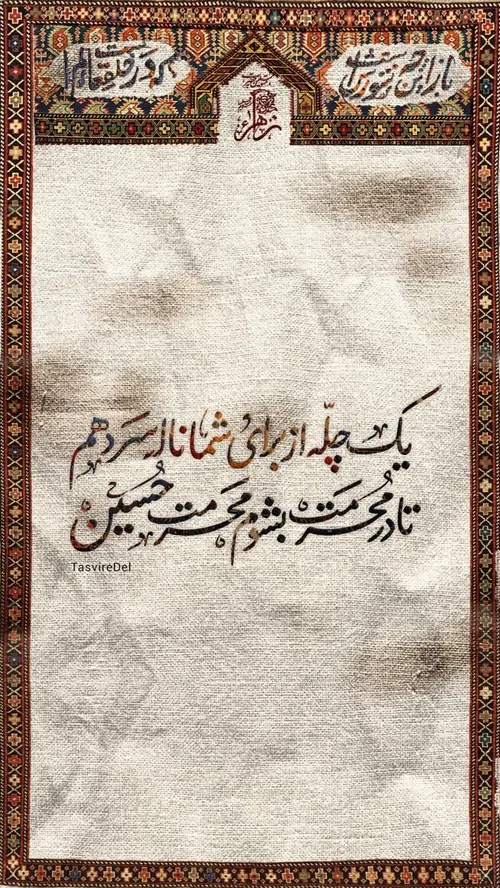 باز این چه شورش است که در خلق عالم است
زهرا
یک چلّه از برای شما ناله سر دهم
تا در محرمت بشوم محرمت حسین
TasvireDel